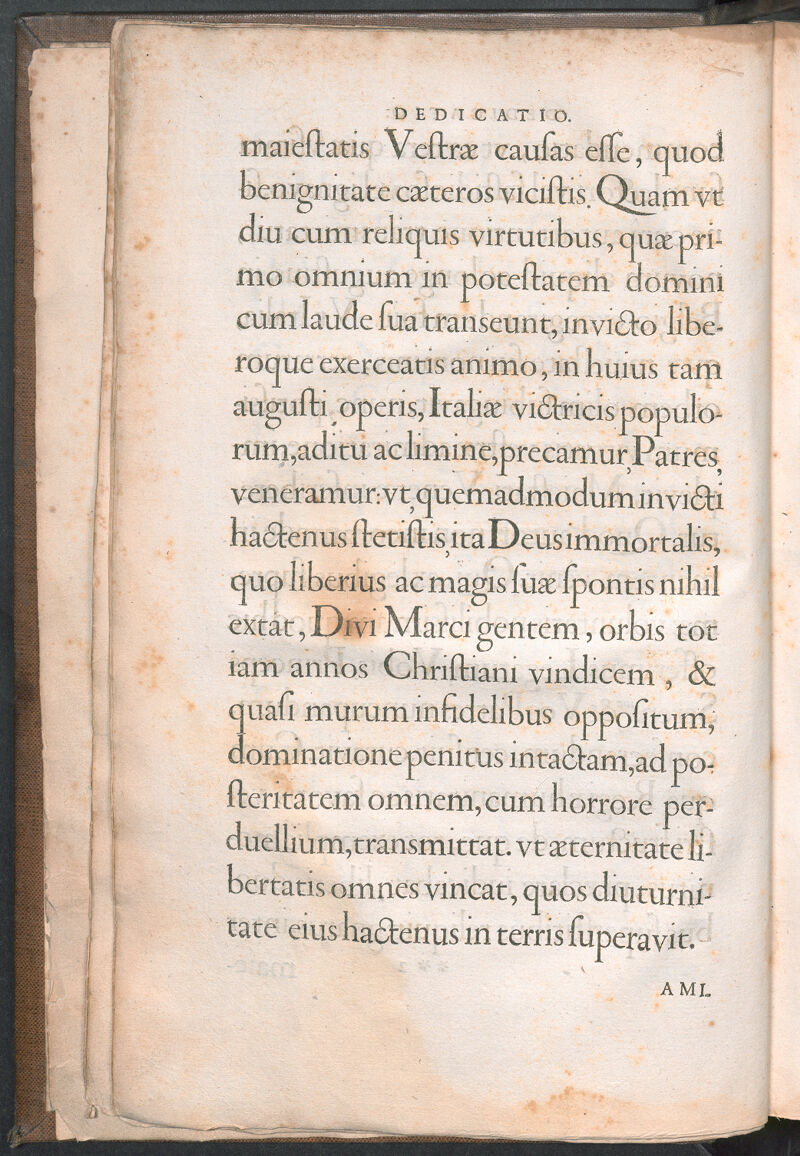 DEDICATIO.
maieſtatis Veſtræ cauſas eſſe, quod
benignitate cæteros viciſtis. Quam vt
diu cum reliquis virtutibus, quæ pri-
mo omnium in poteſtatem domini
cum laude ſua transeunt, invicto libe-
roque exerceatis animo, in huius tam
auguſti operis, Italiæ victricis populo-
rum, aditu ac limine, precamur Patres,
veneramur: vt, quemadmodum invicti
hactenus ſtetiſtis, ita Deus immortalis,
quo liberius ac magis ſuæ ſpontis nihil
extat, Divi Marci gentem, orbis tot
iam annos Chriſtiani vindicem, &
quaſi murum infidelibus oppoſitum,
dominatione penitus intactam, ad po-
ſteritatem omnem, cum horrore per-
duellium, transmittat. vt æternitate li-
bertatis omnes vincat, quos diuturni-
tate eius hactenus in terris ſuperavit.
AMI.